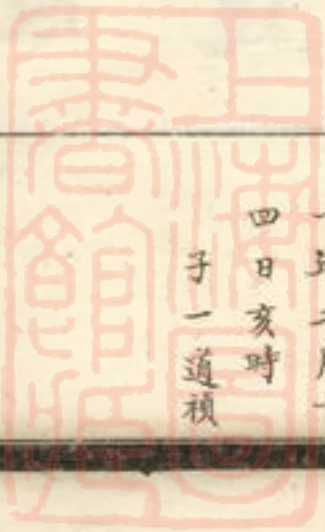 四日亥時
子一道禎
上海圖書館藏